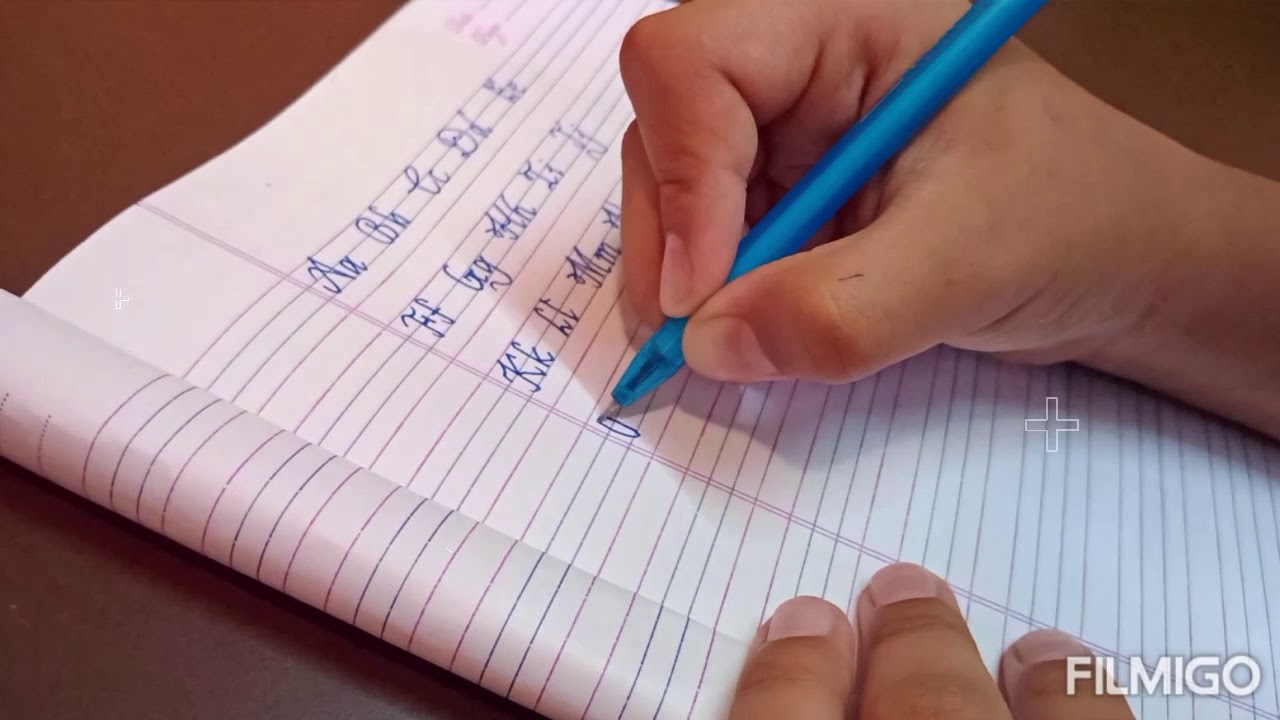 Aa Bb Cc Dd Ee
Ff Gg Hh Ii Jj
Kk Ll Mm N
O
FILMIGO